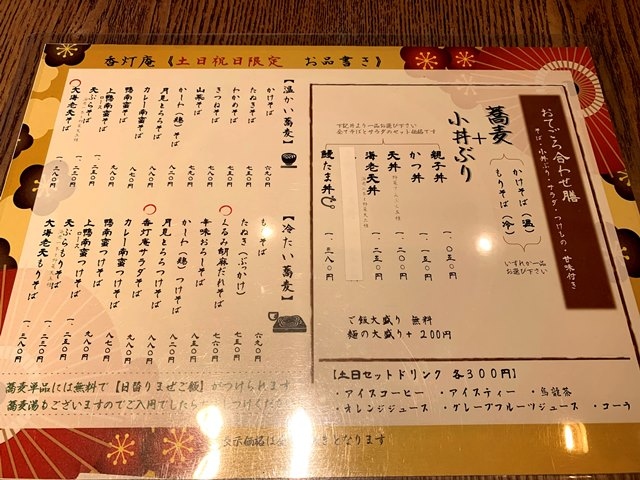 香灯庵《土日祝日限定　お品書き》
おてごろ合わせ膳
そば・小丼ぶり・サラダ・つけもの・甘味付き
蕎麦
かけそば（温）
もりそば（冷）
いずれか一品
お選び下さい
＋
小丼ぶり
下記丼より一品お選び下さい
全てそばとサラダのセット価格です
親子丼　一、〇五〇円
かつ丼　一、一五〇円
天丼　一、二〇〇円
海老天丼　一、二五〇円
鰻たま丼　一、三八〇円
ご飯大盛り 無料
麺の大盛り＋200円
【土日セットドリンク　各300円】
・アイスコーヒー　・アイスティー　・烏龍茶
・オレンジジュース　・グレープフルーツジュース　・コーラ
【温かい蕎麦】
かけそば
たぬきそば
わかめそば
きつねそば
山菜そば
かしわ（鶏）そば
月見とろろそば
カレー南蛮そば
鴨南蛮そば
上鴨南蛮そば
ロース
天ぷらそば
大海老天そば
【冷たい蕎麦】
もりそば　六九〇円
たぬき（ぶっかけ）
くるみ胡麻だれそば
辛味おろしそば
かしわ（鶏）つけそば
月見とろろつけそば
香灯庵サラダそば
カレー南蛮つけそば
鴨南蛮つけそば
上鴨南蛮つけそば
ロース
天ぷらもりそば
大海老天もりそば
蕎麦単品には無料で【日替りまぜご飯】がつけられます
蕎麦湯もございますのでご入用でしたら
表示価格は
きとなります